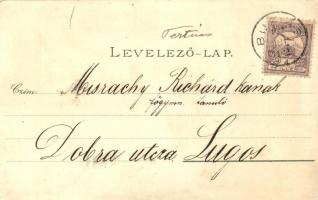 Tertius
LEVELEZŐ-LAP.
Czím: Misrachy Richárd úrnak
főgymn. tanuló
Dobra utcza Lugos